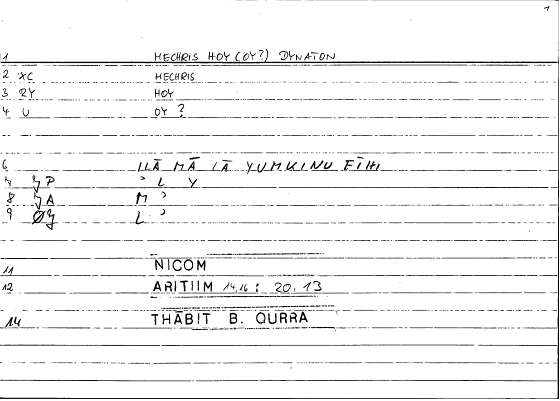 1
1 MECHRIS HOY (OY?) DYNATON
2 XC MECHRIS
3 RY HOY
4 U OY ?
6 ILĀ MĀ LĀ YUMKINU FĪHI
P ʾ L Y
8 A M ʾ
9 L ʾ
11 NICOM
12 ARITIIM 14,16 : 20,13
14 THĀBIT B. QURRA